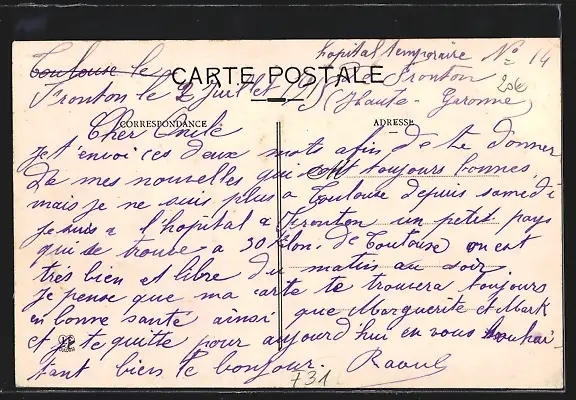 hopital temporaire No 14
Toulouse le
CARTE POSTALE
Fronton
206
Fronton le 2 Juillet (Haute-Garonne)
CORRESPONDANCE
ADRESSE
Cher Emile
Je t'envoi ces deux mots afin de te donner
de mes nouvelles qui sont toujours bonnes
mais je ne suis plus a Toulouse depuis samedi
je suis a l'hopital a Fronton un petit pays
qui se trouve a 30 klon. de Toulouse on est
tres bien et libre du matin au soir
Je pense que ma carte te trouvera toujours
en bonne santé ainsi que Marguerite et Mark
et je te quitte pour aujourd'hui en vous souhai-
tant bien le bonjour. Raoul
731